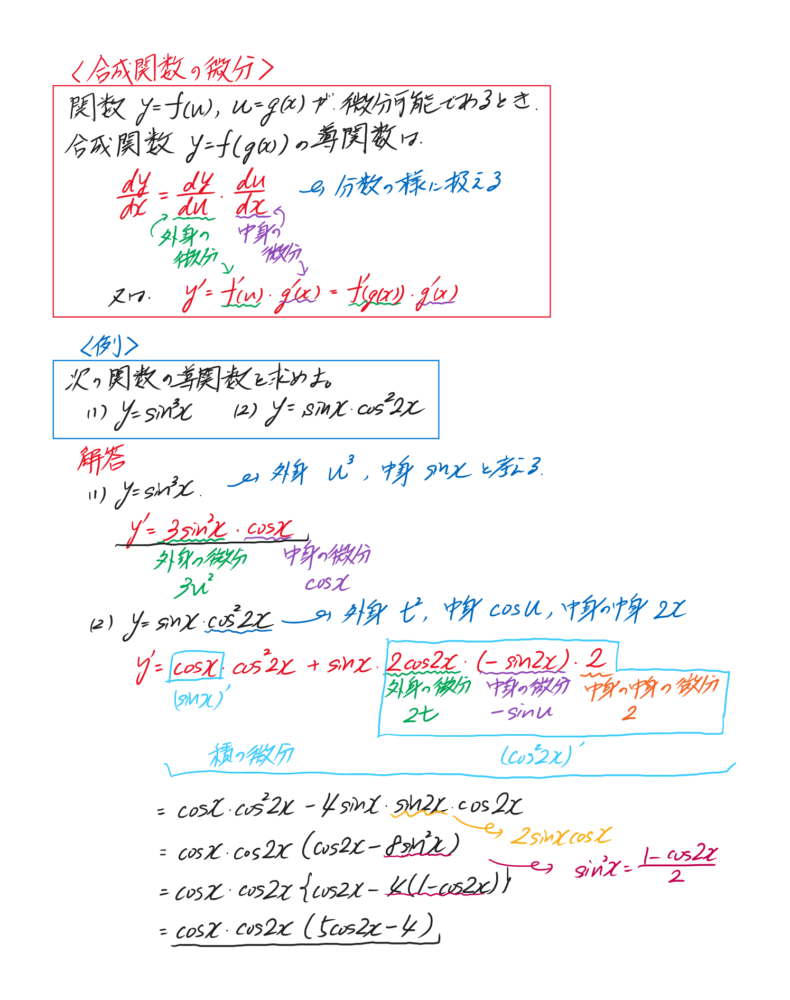 〈合成関数の微分〉
関数 y=f(u), u=g(x) が 微分可能であるとき.
合成関数 y=f(g(x)) の導関数は.
dy/dx = dy/du · du/dx → 分数の様に扱える
外身の微分 中身の微分
又は. y'=f'(u)·g'(x) = f'(g(x))·g'(x)
〈例〉
次の関数の導関数を求めよ。
(1) y=sin³x (2) y=sinx·cos²2x
解答
(1) y=sin³x. → 外身 u³, 中身 sinx と考える.
y'=3sin²x·cosx
外身の微分 中身の微分
3u² cosx
(2) y=sinx·cos²2x → 外身 t², 中身 cosu, 中身の中身 2x
y'=cosx·cos²2x + sinx·2cos2x·(-sin2x)·2
(sinx)' 外身の微分 中身の微分 中身の中身の微分
2t -sinu 2
積の微分 (cos²2x)'
= cosx·cos²2x - 4sinx·sin2x·cos2x
2sinxcosx
= cosx·cos2x (cos2x - 8sin²x)
sin²x = (1-cos2x)/2
= cosx·cos2x {cos2x - 4(1-cos2x)}
= cosx·cos2x (5cos2x-4)